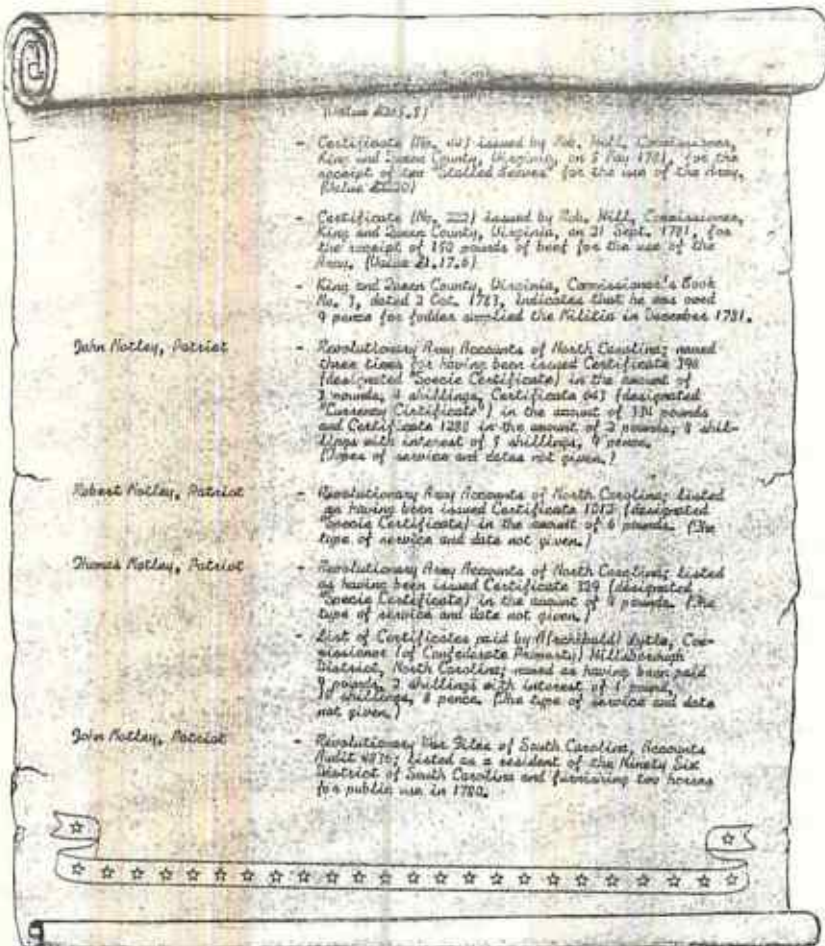 (Value
- Certificate (No. issued by Rob. Hill, Commissioner,
King and Queen County, Virginia, on 5 May 1781, for the
receipt of two "Stalled Beeves" for the use of the Army.
(Value
- Certificate (No. 222) issued by Rob. Hill, Commissioner,
King and Queen County, Virginia, on 21 Sept. 1781, for
the receipt of 150 pounds of beef for the use of the
Army. (Value £1.17.6)
- King and Queen County, Virginia, Commissioner's Book
No. 3, dated 2 Oct. 1783, indicates that he was owed
9 pence for fodder supplied the Militia in December 1781.
John Motley, Patriot - Revolutionary Army Accounts of North Carolina; named
three times for having been issued Certificate 398
(designated "Specie Certificate) in the amount of
pounds, shillings, Certificate 643 (designated
"Currency Cirtificate") in the amount of pounds
and Certificate 1280 in the amount of 2 pounds, 8 shil-
lings with interest of shillings, 9 pence.
(Types of service and dates not given.)
Robert Motley, Patriot - Revolutionary Army Accounts of North Carolina; listed
as having been issued Certificate 1012 (designated
"Specie Certificate) in the amount of 6 pounds. (The
type of service and date not given.)
Thomas Motley, Patriot - Revolutionary Army Accounts of North Carolina; listed
as having been issued Certificate 329 (designated
"Specie Certificate) in the amount of 9 pounds. (The
type of service and date not given.)
- List of Certificates paid by A(rchibald) Lytle, Com-
missioner (of Confederate Property) Hillsborough
District, North Carolina; named as having been paid
9 pounds, 2 shillings with interest of 1 pound,
10 shillings, 8 pence. (The type of service and date
not given.)
John Motley, Patriot - Revolutionary War Files of South Carolina, Accounts
Audit listed as a resident of the Ninety Six
District of South Carolina and furnishing two horses
for public use in 1780.